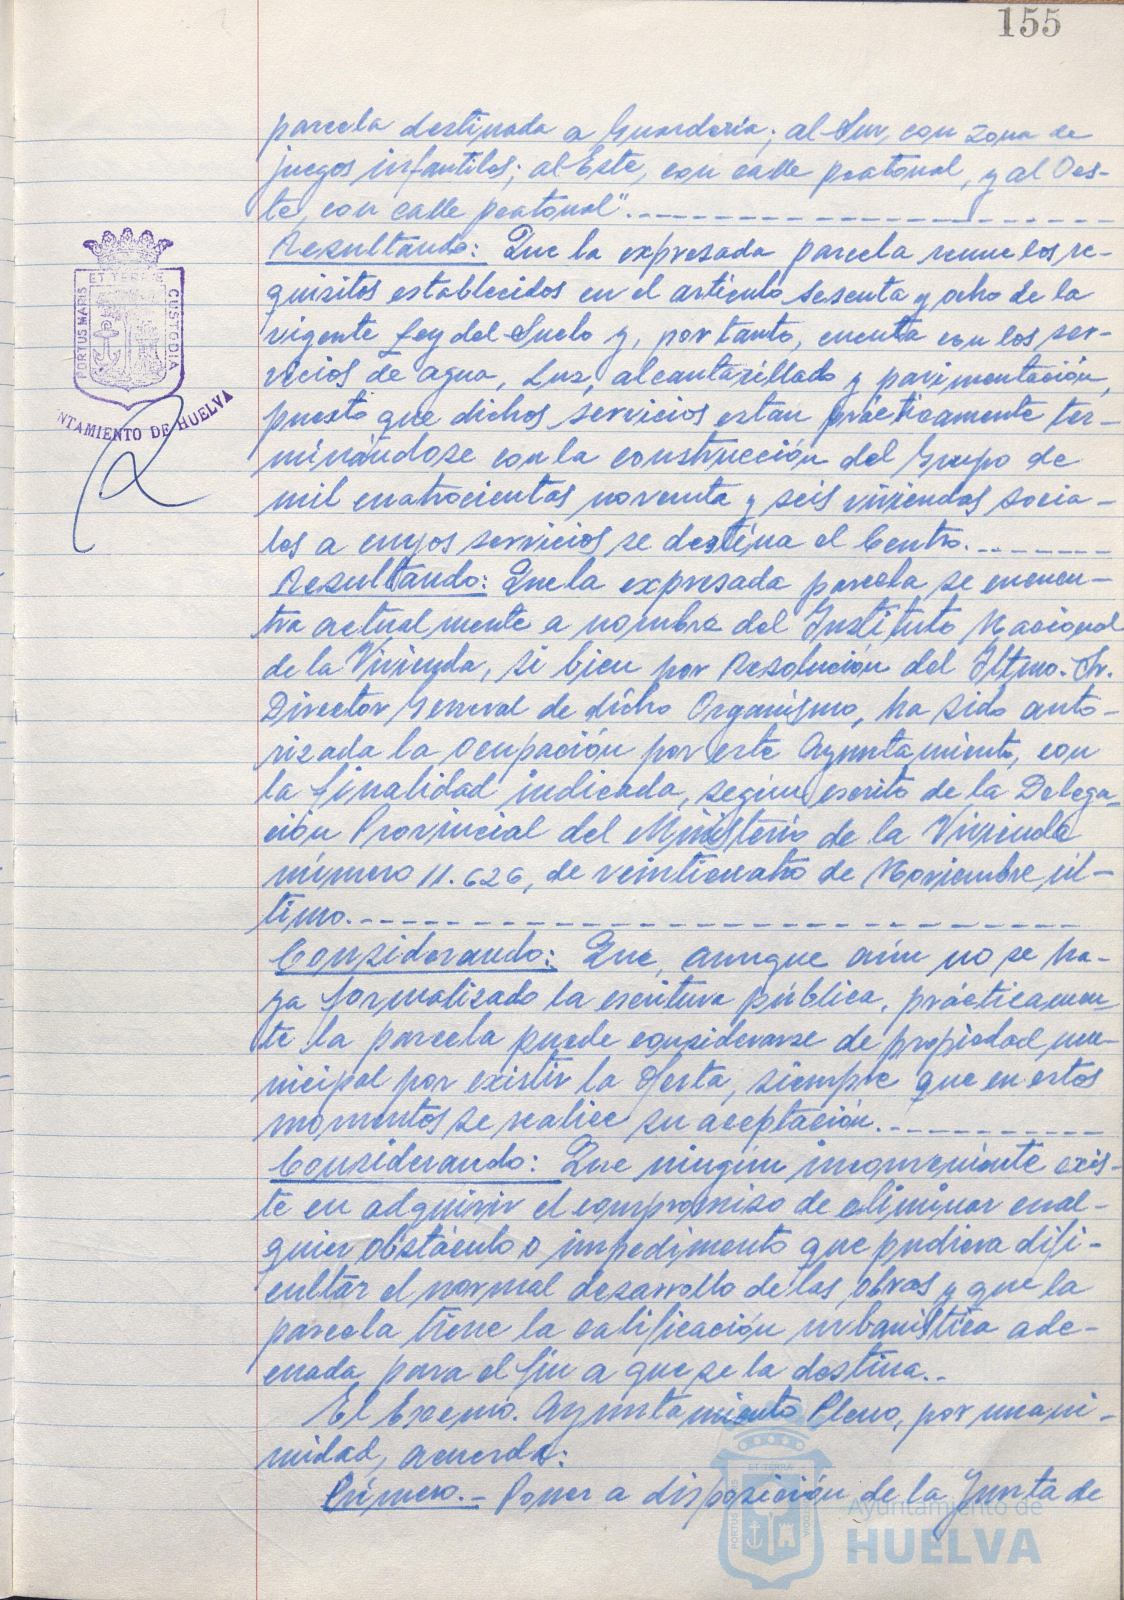 155
parcela destinada a Guardería; al Sur, con zona de
juegos infantiles; al Este, con calle peatonal, y al Oes-
te, con calle peatonal".
Resultando: Que la expresada parcela reune los re-
quisitos establecidos en el artículo sesenta y ocho de la
vigente Ley del Suelo y, por tanto, cuenta con los ser-
vicios de agua, luz, alcantarillado y pavimentación,
puesto que dichos servicios estan prácticamente ter-
minándose con la construcción del Grupo de
mil cuatrocientas noventa y seis viviendas socia-
les a cuyos servicios se destina el Centro.
Resultando: Que la expresada parcela se encuen-
tra actualmente a nombre del Instituto Nacional
de la Vivienda, si bien por Resolución del Iltmo. Sr.
Director General de dicho Organismo, ha sido auto-
rizada la ocupación por este Ayuntamiento, con
la finalidad indicada, según escrito de la Delega-
ción Provincial del Ministerio de la Vivienda
número 11.626, de veinticuatro de Noviembre úl-
timo.
Considerando: Que, aunque aún no se ha-
ya formalizado la escritura pública, prácticamen-
te la parcela puede considerarse de propiedad mu-
nicipal por existir la oferta, siempre que en estos
momentos se realice su aceptación.
Considerando: Que ningún inconveniente exis-
te en adquirir el compromiso de eliminar cual-
quier obstáculo o impedimento que pudiera difi-
cultar el normal desarrollo de las obras y que la
parcela tiene la calificación urbanística ade-
cuada para el fin a que se la destina.-
El Excmo. Ayuntamiento Pleno, por unani-
midad, acuerda:
Primero.- Poner a disposición de la Junta de
ET TERRIS
PORTUS MARIS
CUSTODIA
NTAMIENTO DE HUELVA
Ayuntamiento de
HUELVA